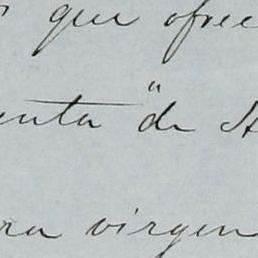 que ofre
enta "de A
ra virgen